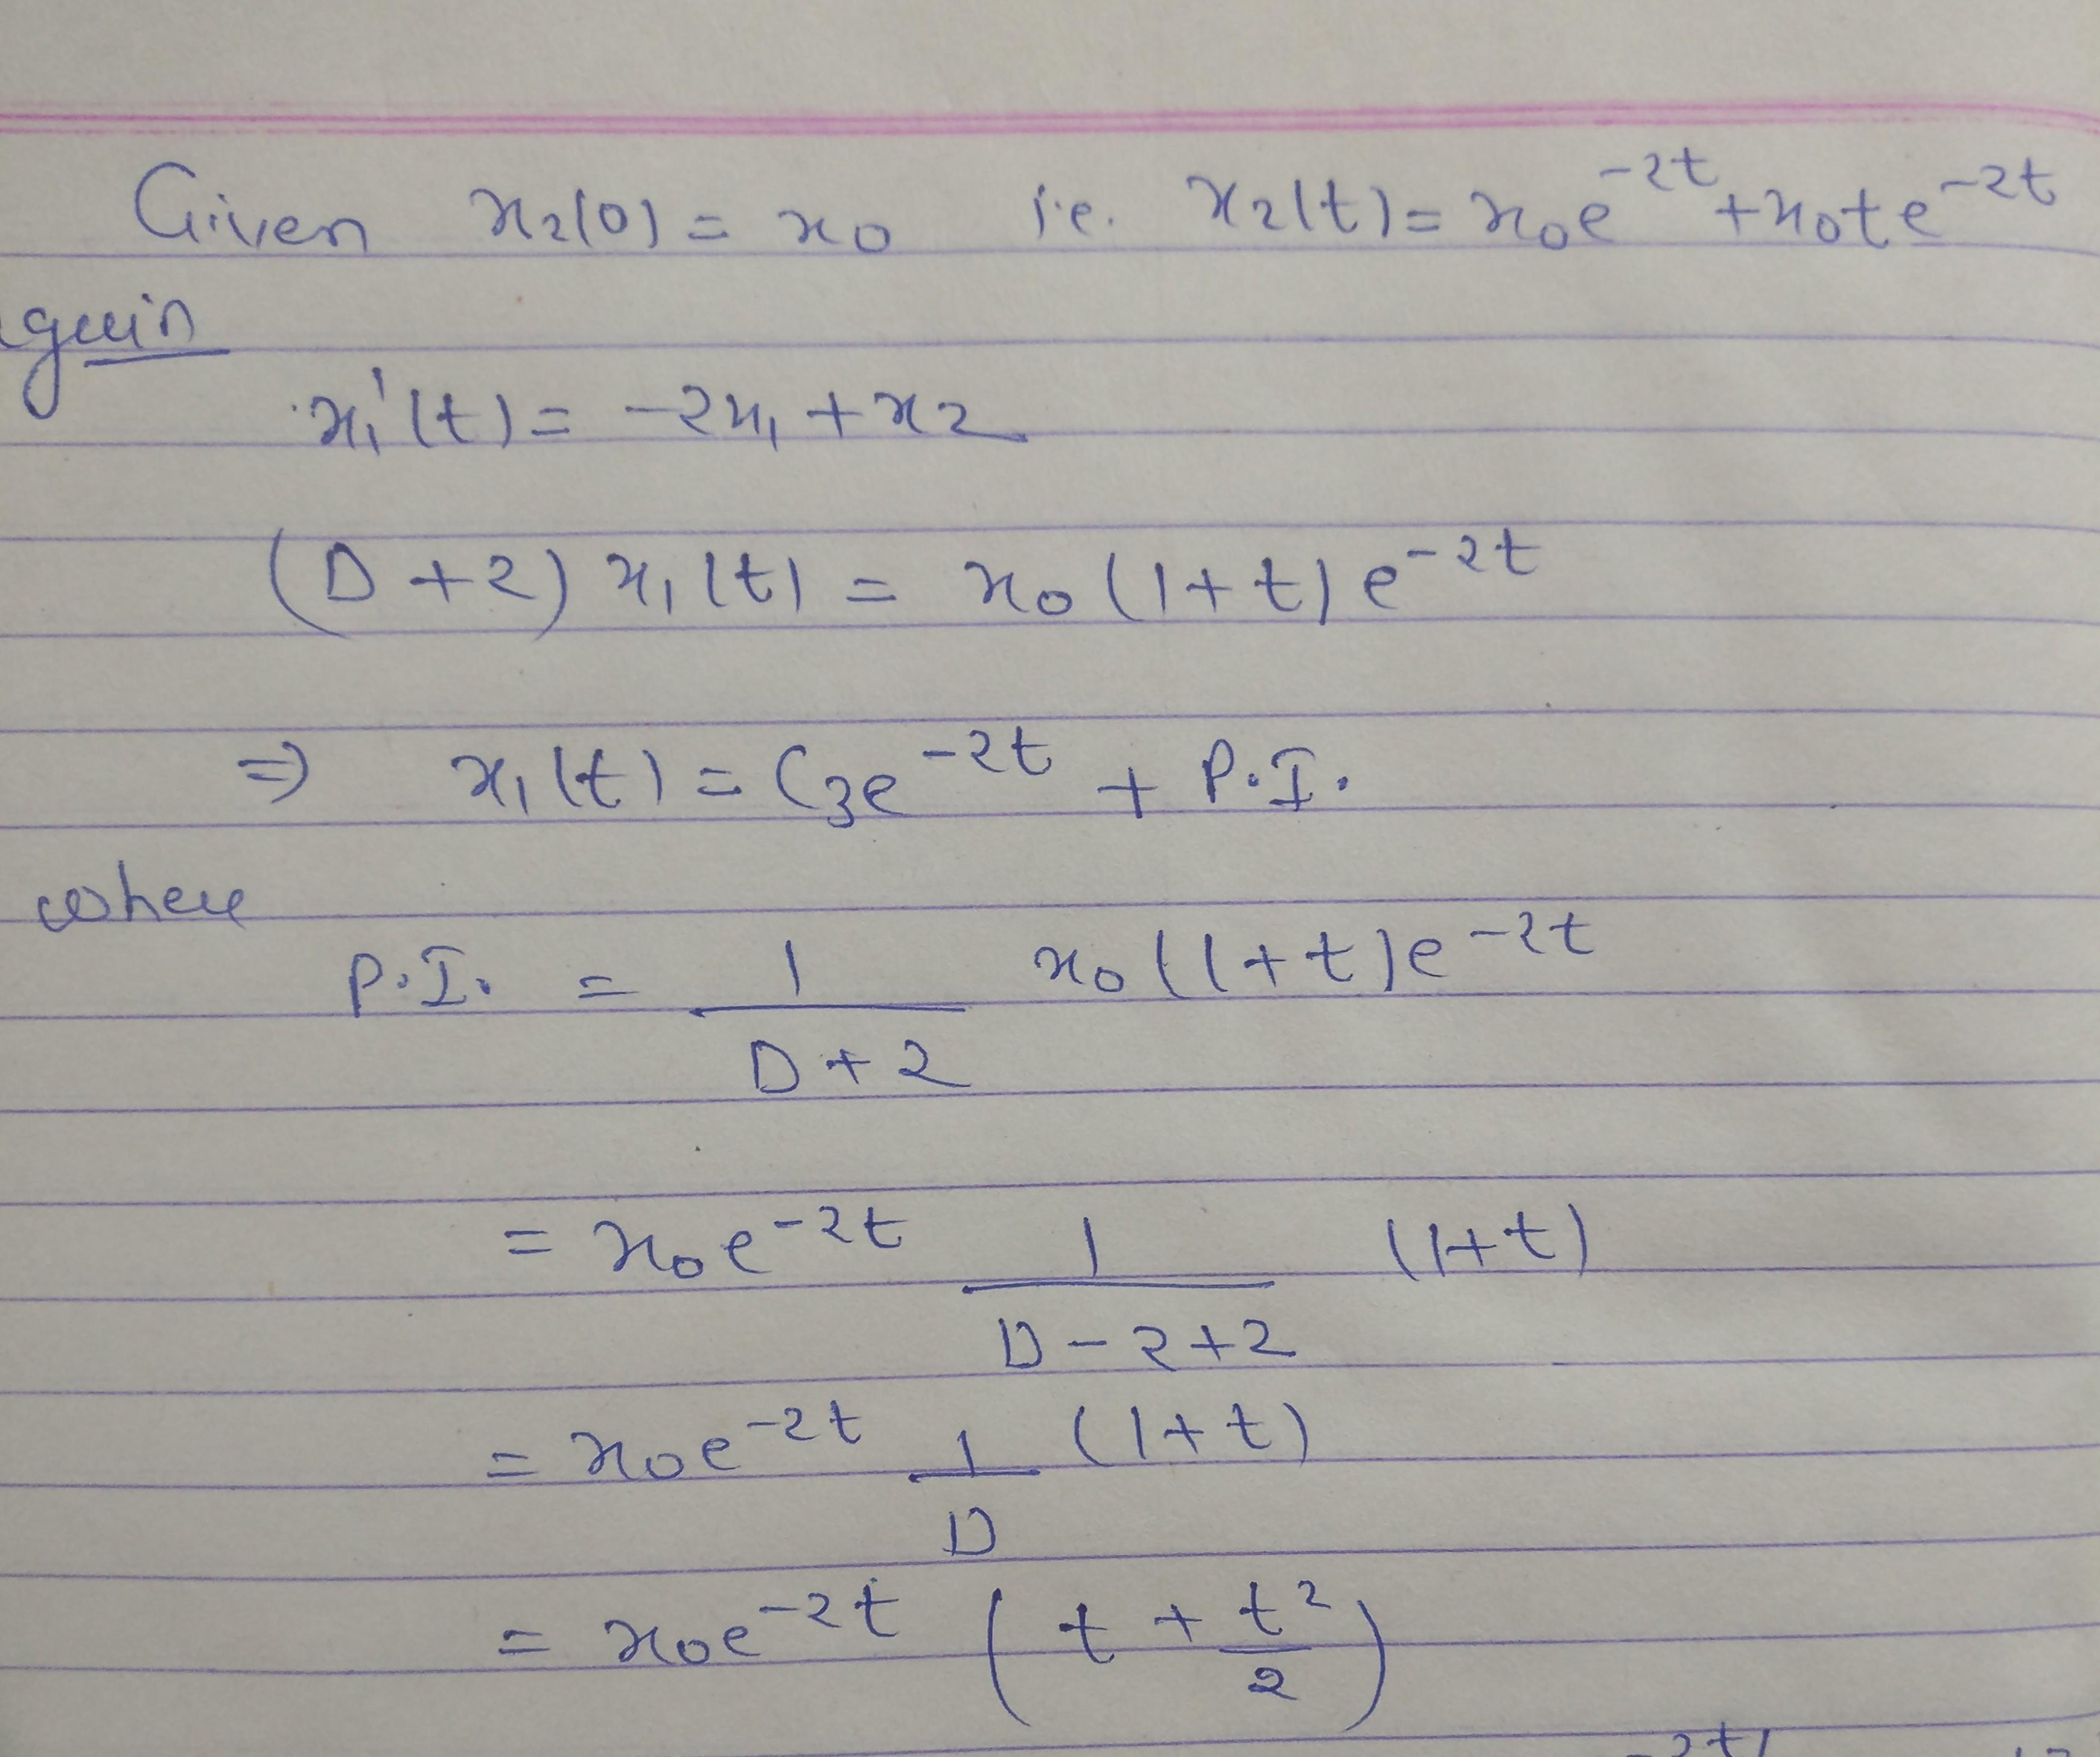 Given x₂(0) = x₀ i.e. x₂(t) = x₀e⁻²ᵗ + x₀te⁻²ᵗ
x₁'(t) = -2x₁ + x₂
(D + 2) x₁(t) = x₀(1+t)e⁻²ᵗ
⇒ x₁(t) = C₃e⁻²ᵗ + P.I.
where
P.I. = 1/(D+2) x₀(1+t)e⁻²ᵗ
= x₀e⁻²ᵗ 1/(D-2+2) (1+t)
= x₀e⁻²ᵗ 1/D (1+t)
= x₀e⁻²ᵗ (t + t²/2)